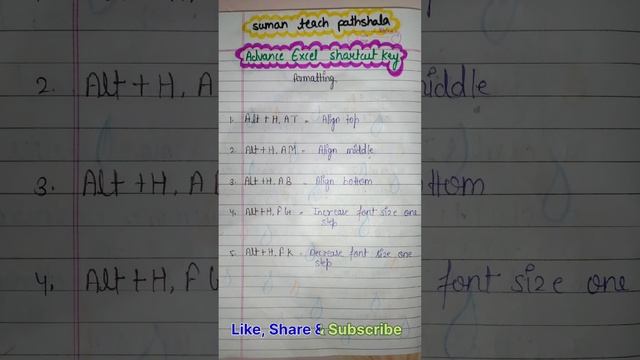 suman teach pathshala
Advance Excel shortcut key
formatting.
1. Alt + H, A T = Align top
2. Alt + H, A M = Align middle
3. Alt + H, A B = Align bottom
4. Alt + H, F G = Increase font size one
step
5. Alt + H, F K = Decrease font size one
step
Like, Share & Subscribe
2. Alt + H, A
iddle
3. Alt + H, A
ttom
4. Alt + H, F G
font size one